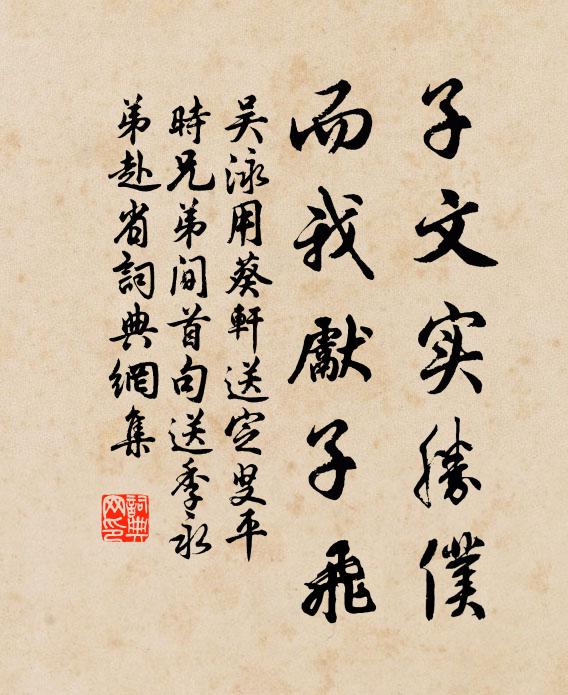 子文实勝僕
而我獻子飛
吴泳用葵軒送定叟平
時兄弟间首句送季永
弟赴省詞典網集
詞典网印